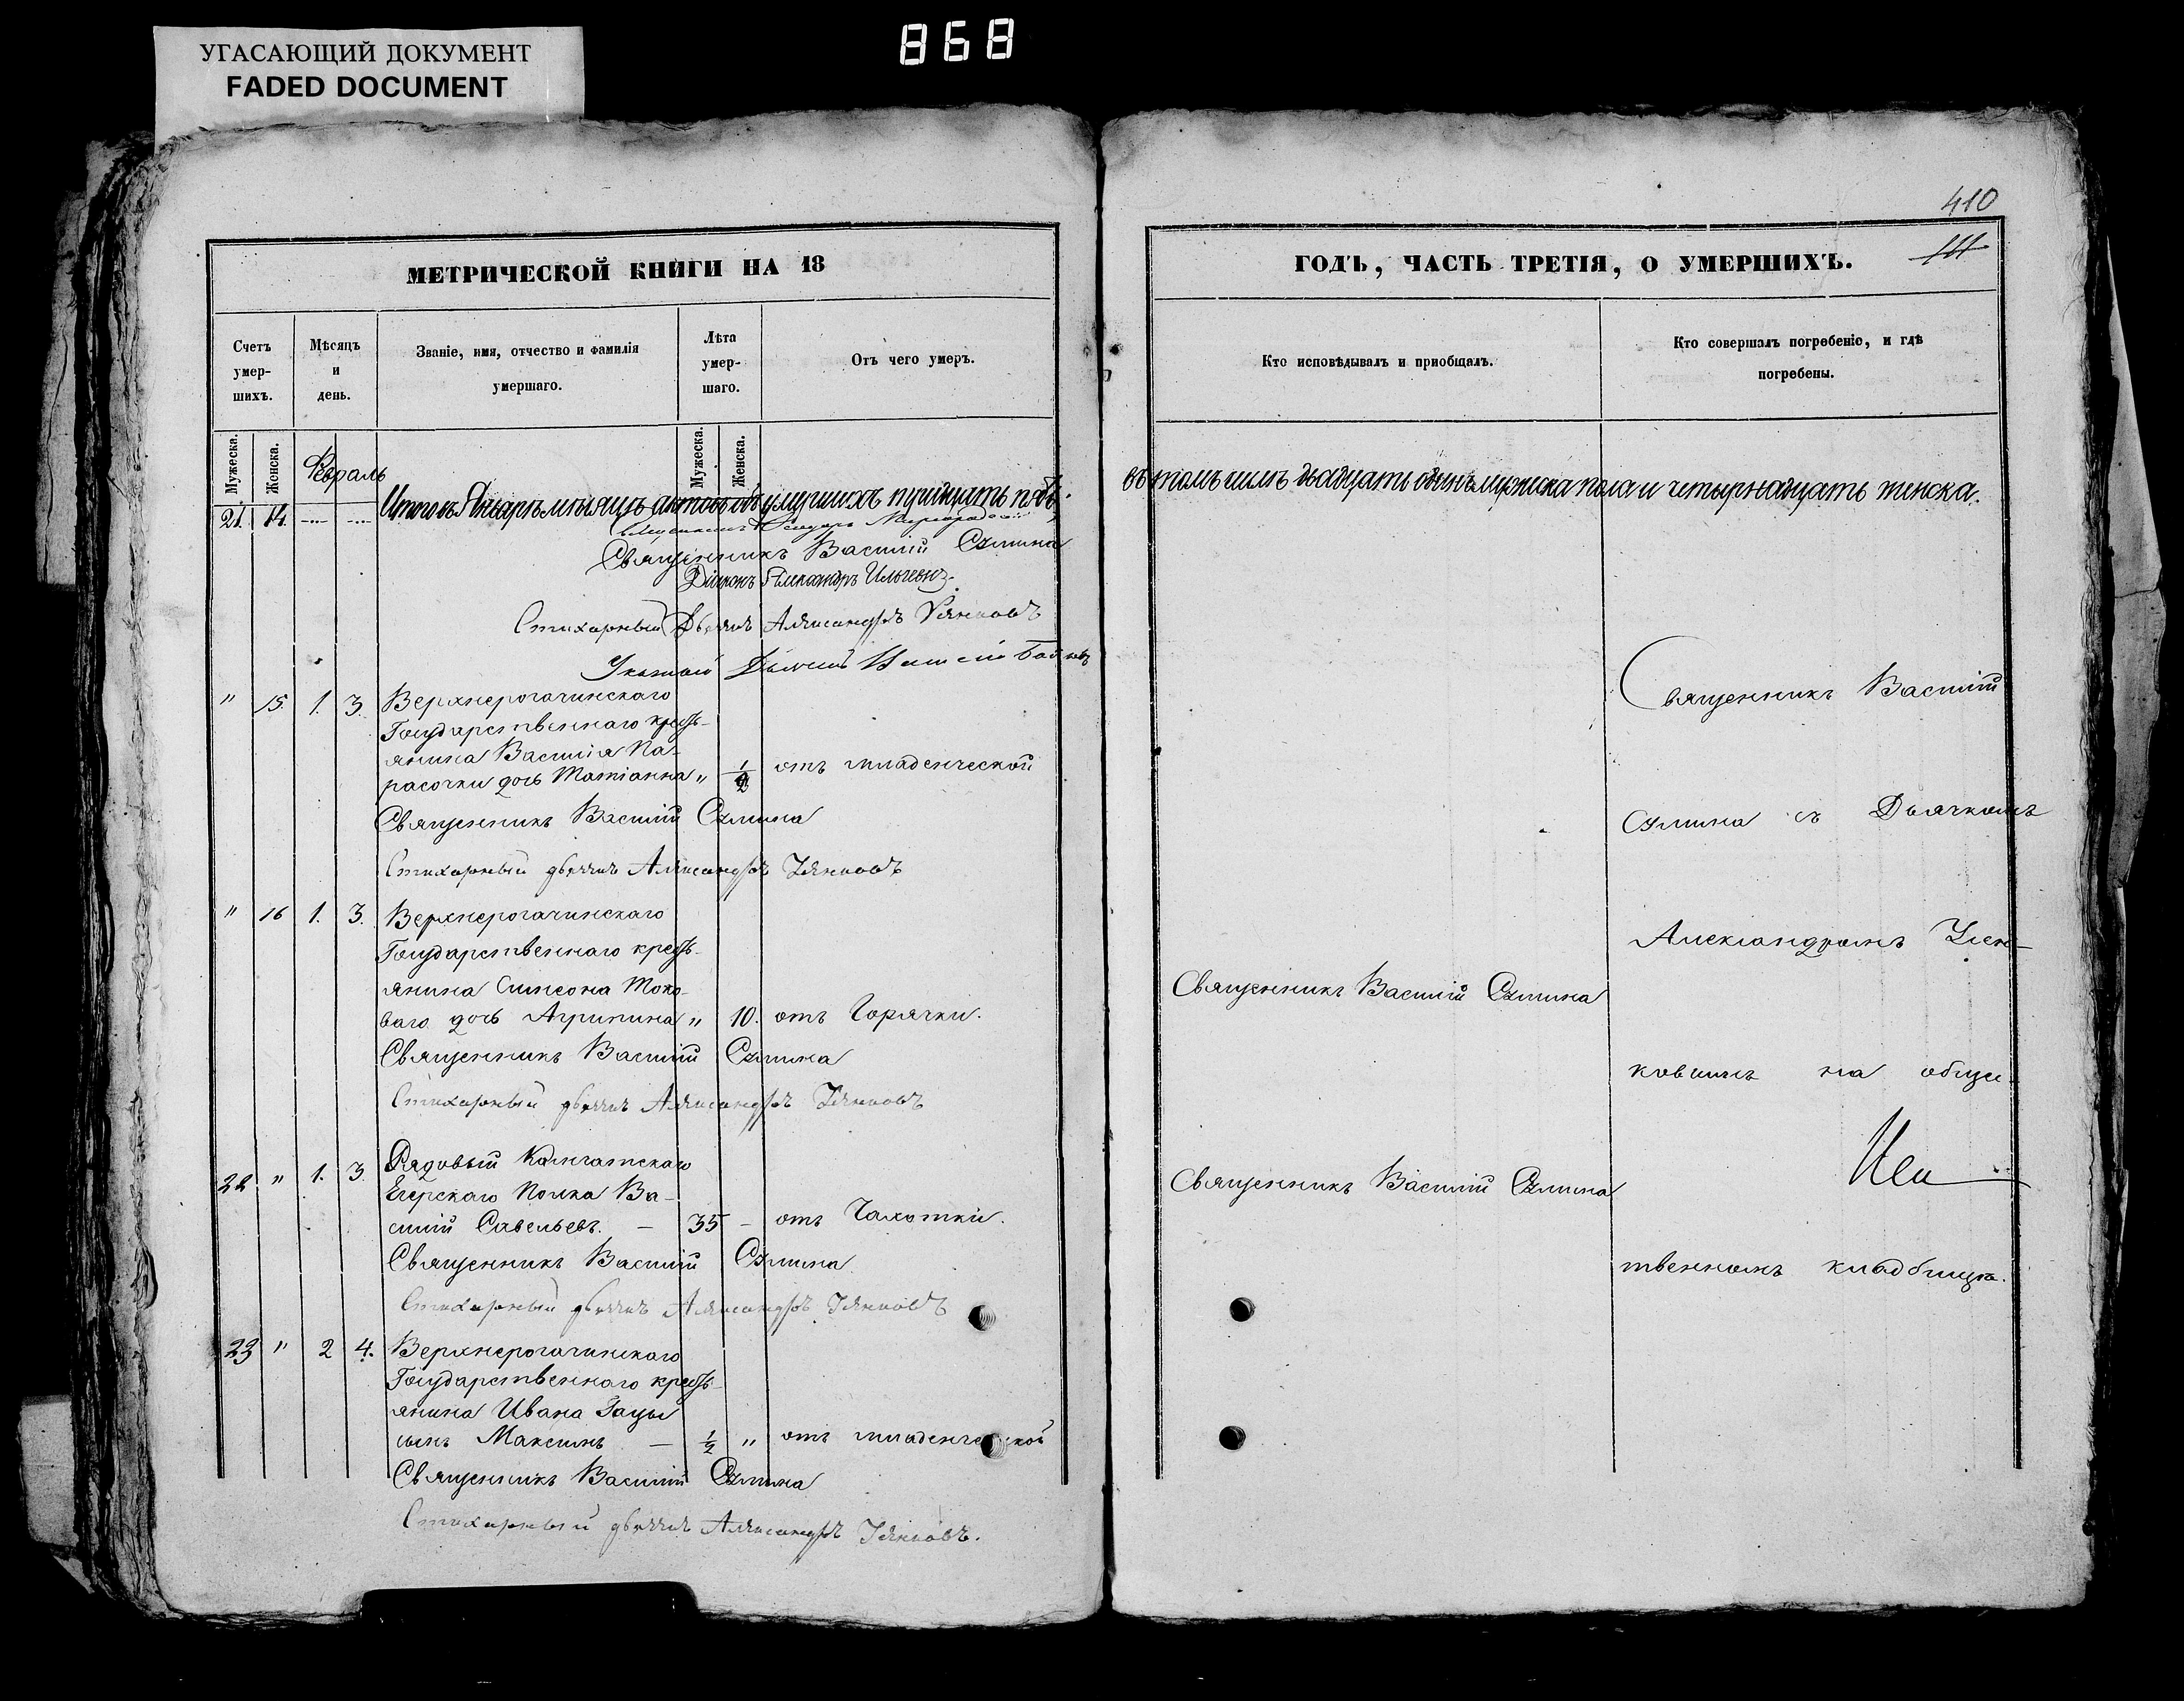 868
УГАСАЮЩИЙ ДОКУМЕНТ
FADED DOCUMENT
МЕТРИЧЕСКОЙ КНИГИ НА 18
Счетъ умер-шихъ.
Мѣсяцъ и день.
Званіе, имя, отчество и фамилія умершаго.
Лѣта умер-шаго.
Отъ чего умеръ.
Мужеска.
Женска.
Мужеска.
Женска.
Февраль
21. 14.
Итого въ Январѣ мѣсяцѣ актовъ объ умершихъ тридцать пять,
Священникъ Василій
Діаконъ Александръ
Стихарный Дьячекъ Александръ
Указный
" 15. 1. 3. Верхнерогачинскаго
Государственнаго кресть-
янина Василія Па-
расочки дочь Татіанна " 1/2 отъ младенческой
Священникъ Василій
Стихарный дьячекъ Александръ
" 16 1. 3. Верхнерогачинскаго
Государственнаго кресть-
янина Симеона Токо-
ваго дочь Агрипина " 10. отъ Горячки.
Священникъ Василій
Стихарный дьячекъ Александръ
22 " 1. 3 Рядовый Камчатскаго
Егерскаго Полка Ва-
силій Савельевъ. — 35 — отъ Чахотки.
Священникъ Василій
Стихарный дьячекъ Александръ
23 " 2 4. Верхнерогачинскаго
Государственнаго кресть-
янина Ивана Зацы
сынъ Максимъ — 1/2 " отъ младенческой
Священникъ Василій
Стихарный дьячекъ Александръ
410
ГОДЪ, ЧАСТЬ ТРЕТІЯ, О УМЕРШИХЪ.
Кто исповѣдывалъ и приобщалъ.
Кто совершалъ погребеніе, и гдѣ погребены.
въ томъ числѣ двадцать одинъ мужеска пола и четырнадцать женска.
Священникъ Василій
съ Дьячкомъ
Александромъ
Священникъ Василій
на общес-
Священникъ Василій
твенномъ кладбищѣ.